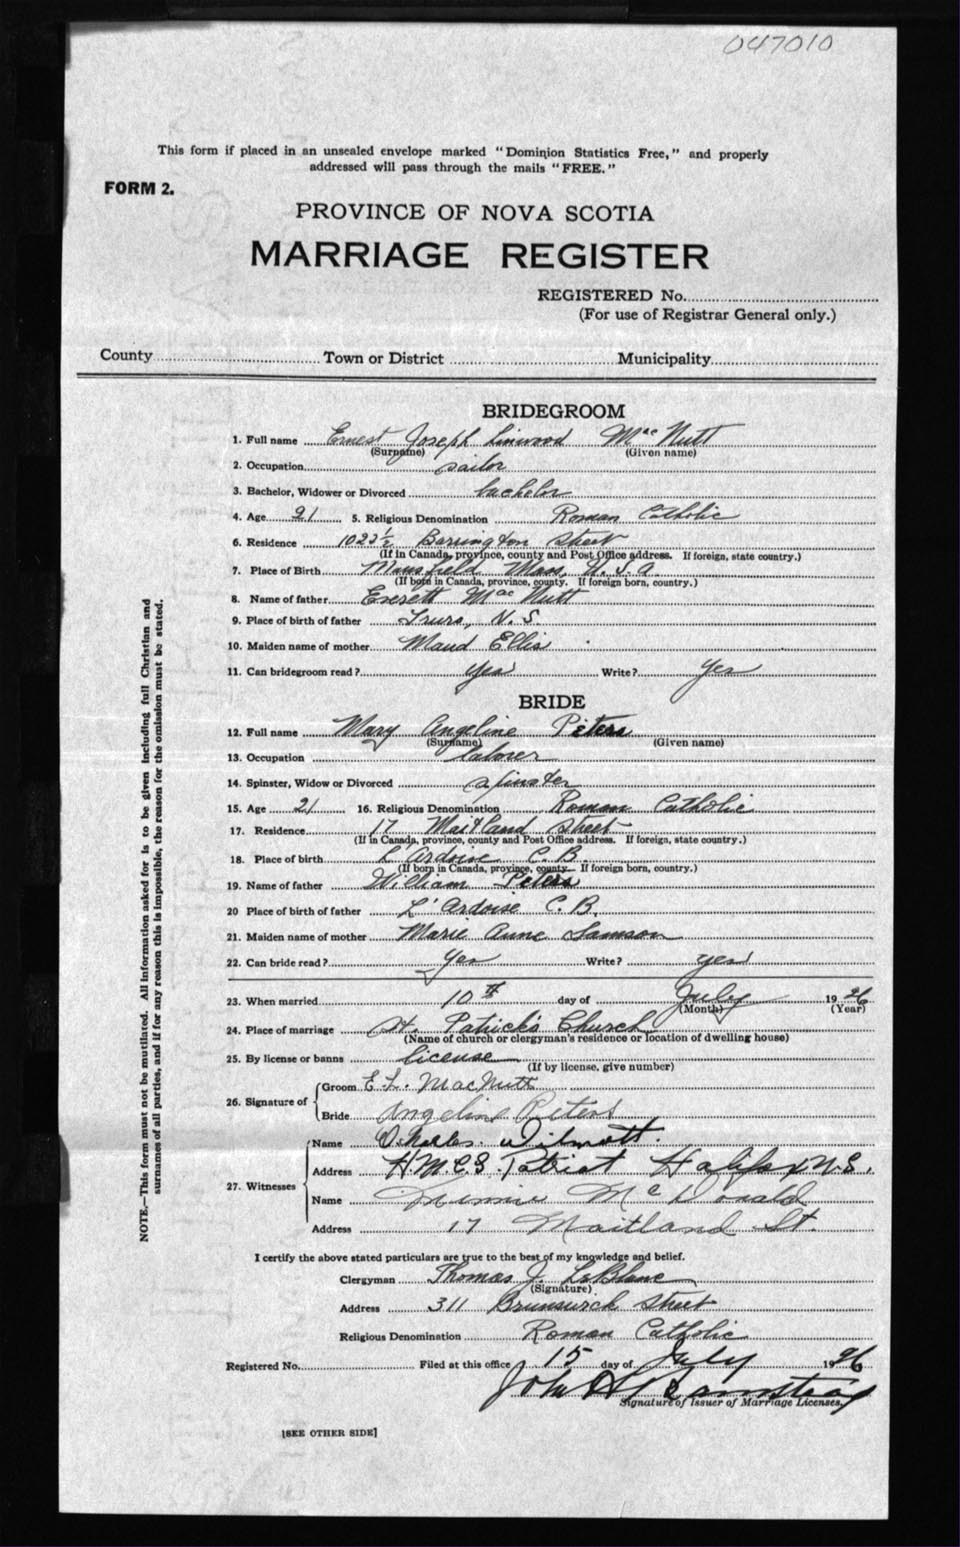 047010
This form if placed in an unsealed envelope marked "Dominion Statistics Free," and properly
addressed will pass through the mails "FREE."
FORM 2.
PROVINCE OF NOVA SCOTIA
MARRIAGE REGISTER
REGISTERED No.
(For use of Registrar General only.)
County Town or District Municipality
BRIDEGROOM
1. Full name Ernest Joseph Linwood MacNutt
(Surname) (Given name)
2. Occupation sailor
3. Bachelor, Widower or Divorced bachelor
4. Age 21 5. Religious Denomination Roman Catholic
6. Residence 1022½ Barrington Street
(If in Canada, province, county and Post Office address. If foreign, state country.)
7. Place of Birth Mansfield Mass, U.S.A.
(If born in Canada, province, county. If foreign born, country.)
8. Name of father Everett MacNutt
9. Place of birth of father Truro, N.S.
10. Maiden name of mother Maud Ellis
11. Can bridegroom read? yes Write? yes
BRIDE
12. Full name Mary Angeline Peters
(Surname) (Given name)
13. Occupation laborer
14. Spinster, Widow or Divorced spinster
15. Age 21 16. Religious Denomination Roman Catholic
17. Residence 17 Maitland Street
(If in Canada, province, county and Post Office address. If foreign, state country.)
18. Place of birth L'Ardoise C.B.
(If born in Canada, province, county. If foreign born, country.)
19. Name of father William Peters
20 Place of birth of father L'Ardoise C.B.
21. Maiden name of mother Marie Anne Samson
22. Can bride read? Yes Write? yes
23. When married 10th day of July 1926
(Month) (Year)
24. Place of marriage St. Patrick's Church
(Name of church or clergyman's residence or location of dwelling house)
25. By license or banns license
(If by license, give number)
26. Signature of
Groom E.L. MacNutt
Bride Angeline Peters
27. Witnesses
Name Charles Wilmott.
Address H.M.C.S. Patriot Halifax N.S.
Name Minnie McDonald
Address 17 Maitland St.
I certify the above stated particulars are true to the best of my knowledge and belief.
Clergyman Thomas J. LeBlanc
(Signature)
Address 311 Brunswick Street
Religious Denomination Roman Catholic
Registered No. Filed at this office 15 day of July 1926
John H. Barnstead
Signature of Issuer of Marriage Licenses.
[SEE OTHER SIDE]
NOTE.—This form must not be mutilated. All information asked for is to be given including full Christian and
surnames of all parties, and if for any reason this is impossible, the reason for the omission must be stated.